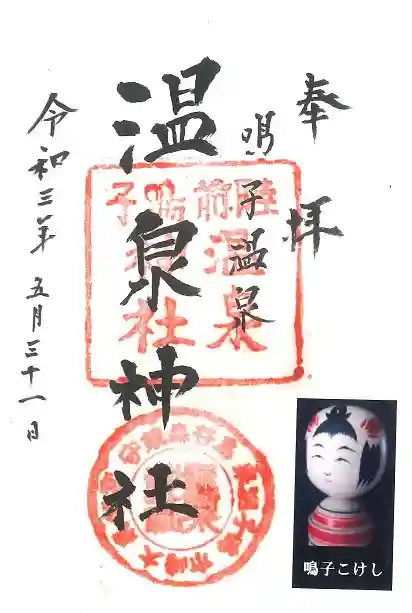 奉拝
鳴子温泉
温泉神社
令和三年 五月三十一日
陸前
鳴子
温泉
神社
鳴子こけし